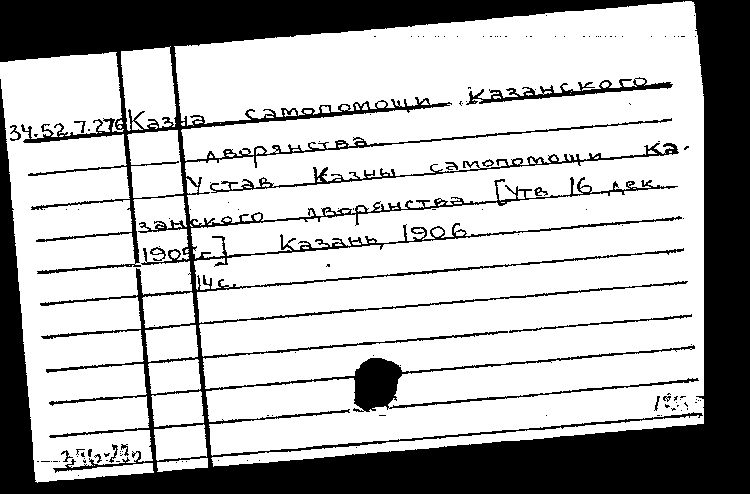 34.52.7.276 Казна самопомощи Казанского
дворянства.
Устав Казны самопомощи Ка-
занского дворянства. [Утв. 16 дек.
1905 г.] Казань, 1906.
14 с.